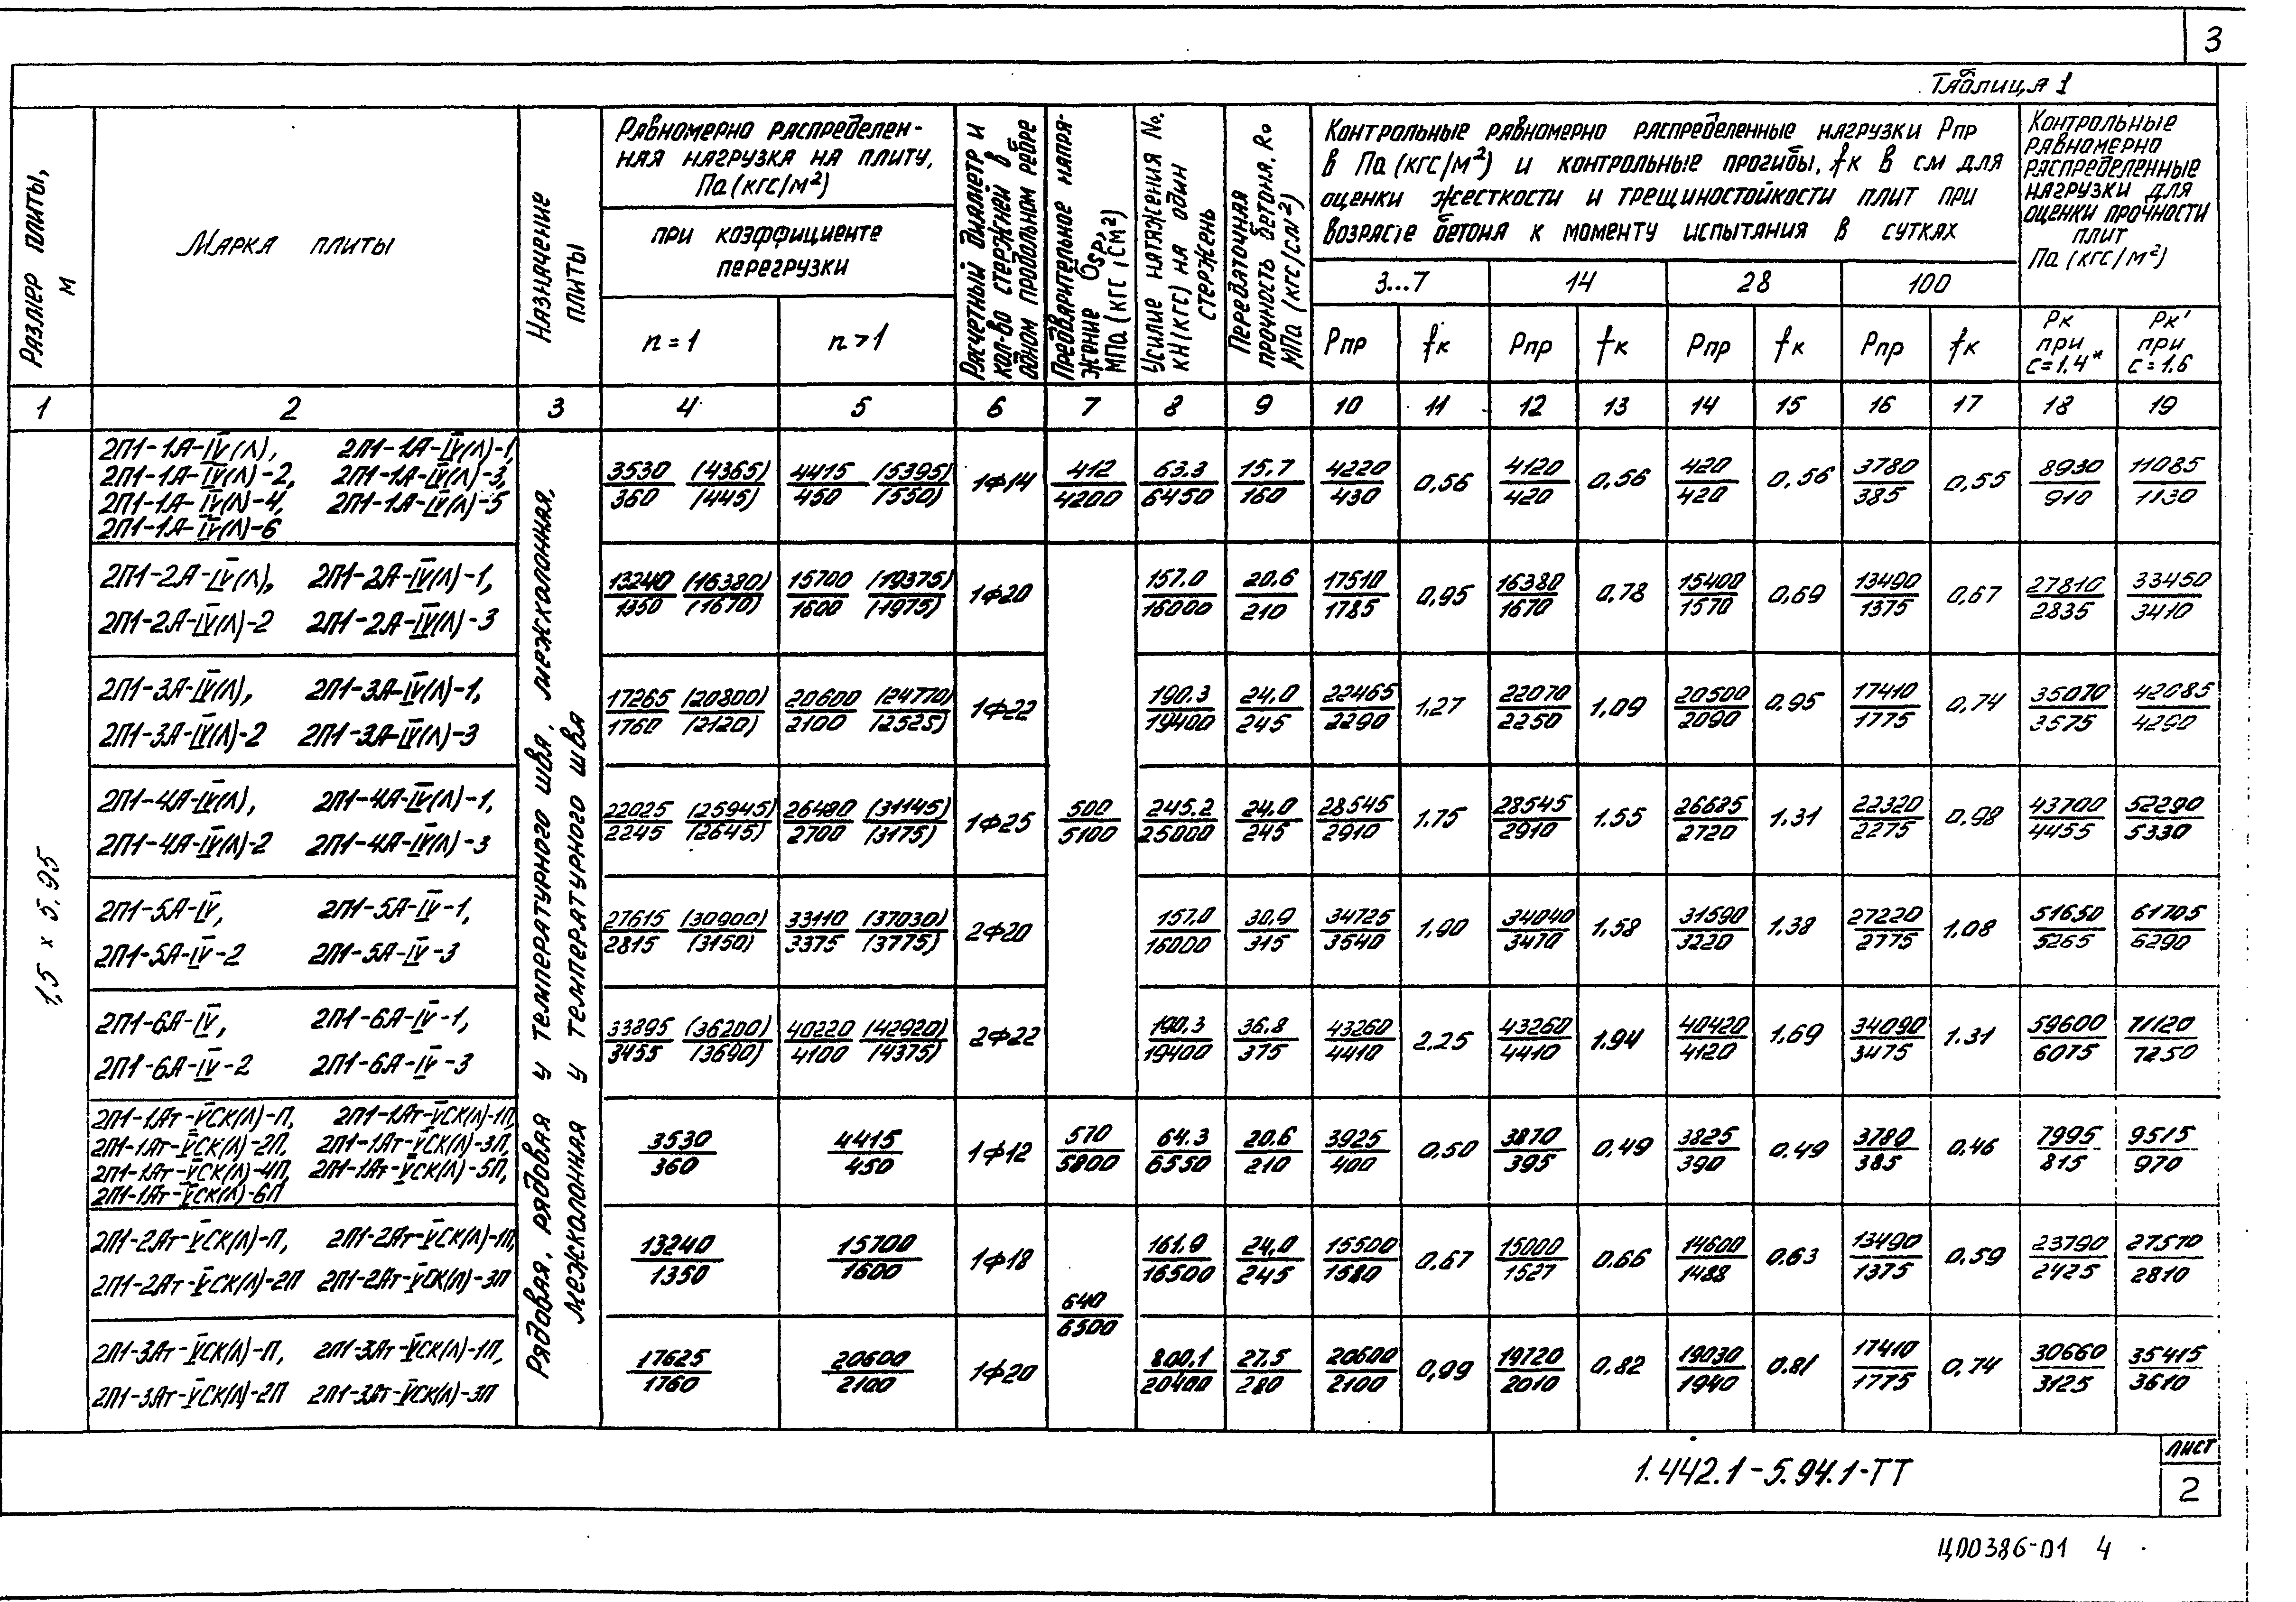 3
Таблица 1
Размер плиты, м
Марка плиты
Назначение плиты
Равномерно распределенная нагрузка на плиту, Па (кгс/м²)
при коэффициенте перегрузки
n = 1
n > 1
Расчетный диаметр и кол-во стержней в одном продольном ребре
Предварительное напряжение σsp, МПа (кгс/см²)
Усилие натяжения No, кН (кгс) на один стержень
Передаточная прочность бетона, Ro МПа (кгс/см²)
Контрольные равномерно распределенные нагрузки Рпр
в Па (кгс/м²) и контрольные прогибы, fк в см для
оценки жесткости и трещиностойкости плит при
возрасте бетона к моменту испытания в сутках
3...7 14 28 100
Рпр fк Рпр fк Рпр fк Рпр fк
Контрольные
равномерно
распределенные
нагрузки для
оценки прочности
плит
Па (кгс/м²)
Рк при с=1.4*
Рк' при с=1.6
1 2 3 4 5 6 7 8 9 10 11 12 13 14 15 16 17 18 19
1,5 х 5.95
Рядовая, рядовая у температурного шва, межколонная,
межколонная у температурного шва
2П1-1А-IV(Л), 2П1-1А-IV(Л)-1,
2П1-1А-IV(Л)-2, 2П1-1А-IV(Л)-3,
2П1-1А-IV(Л)-4, 2П1-1А-IV(Л)-5
2П1-1А-IV(Л)-6
3530 (4365) 4415 (5395) 1ф14 412 63.3 15.7 4220 0,56 4120 0,56 420 0,56 3780 0,55 8930 11085
360 (445) 450 (550) 4200 6450 160 430 420 420 385 910 1130
2П1-2А-IV(Л), 2П1-2А-IV(Л)-1,
2П1-2А-IV(Л)-2 2П1-2А-IV(Л)-3
13240 (16380) 15700 (19375) 1ф20 157.0 20.6 17510 0,95 16380 0,78 15400 0,69 13490 0,67 27810 33450
1350 (1670) 1600 (1975) 16000 210 1785 1670 1570 1375 2835 3410
2П1-3А-IV(Л), 2П1-3А-IV(Л)-1,
2П1-3А-IV(Л)-2 2П1-3А-IV(Л)-3
17265 (20800) 20600 (24770) 1ф22 190.3 24,0 22465 1,27 22070 1,09 20500 0,95 17410 0,74 35070 42085
1760 (2120) 2100 (2525) 19400 245 2290 2250 2090 1775 3575 4290
2П1-4А-IV(Л), 2П1-4А-IV(Л)-1,
2П1-4А-IV(Л)-2 2П1-4А-IV(Л)-3
22025 (25945) 26480 (31145) 1ф25 500 245.2 24.0 28545 1.75 28545 1.55 26685 1.31 22320 0.98 43700 52290
2245 (2645) 2700 (3175) 5100 25000 245 2910 2910 2720 2275 4455 5330
2П1-5А-IV, 2П1-5А-IV-1,
2П1-5А-IV-2 2П1-5А-IV-3
27615 (30900) 33110 (37030) 2ф20 157.0 30.9 34725 1.90 34040 1.58 31590 1.38 27220 1.08 51650 61705
2815 (3150) 3375 (3775) 16000 315 3540 3470 3220 2775 5265 6290
2П1-6А-IV, 2П1-6А-IV-1,
2П1-6А-IV-2 2П1-6А-IV-3
33895 (36200) 40220 (42920) 2ф22 190.3 36.8 43260 2.25 43260 1.94 40420 1.69 34090 1.31 59600 71120
3455 (3690) 4100 (4375) 19400 375 4410 4410 4120 3475 6075 7250
2П1-1Ат-VСК(Л)-П, 2П1-1Ат-VСК(Л)-1П,
2П1-1Ат-VСК(Л)-2П, 2П1-1Ат-VСК(Л)-3П,
2П1-1Ат-VСК(Л)-4П, 2П1-1Ат-VСК(Л)-5П,
2П1-1Ат-VСК(Л)-6П
3530 4415 1ф12 570 64.3 20.6 3925 0.50 3870 0.49 3825 0.49 3780 0.46 7995 9515
360 450 5800 6550 210 400 395 390 385 815 970
2П1-2Ат-VСК(Л)-П, 2П1-2Ат-VСК(Л)-1П,
2П1-2Ат-VСК(Л)-2П 2П1-2Ат-VСК(Л)-3П
13240 15700 1ф18 161.9 24,0 15500 0.67 15000 0.66 14600 0.63 13490 0.59 23790 27570
1350 1600 16500 245 1580 1527 1488 1375 2425 2810
640
6500
2П1-3Ат-VСК(Л)-П, 2П1-3Ат-VСК(Л)-1П,
2П1-3Ат-VСК(Л)-2П 2П1-3Ат-VСК(Л)-3П
17625 20600 1ф20 800.1 27.5 20600 0,99 19720 0.82 19030 0.81 17410 0,74 30660 35415
1760 2100 20400 280 2100 2010 1940 1775 3125 3610
1.442.1-5.94.1-ТТ
лист
2
Ц00386-01 4